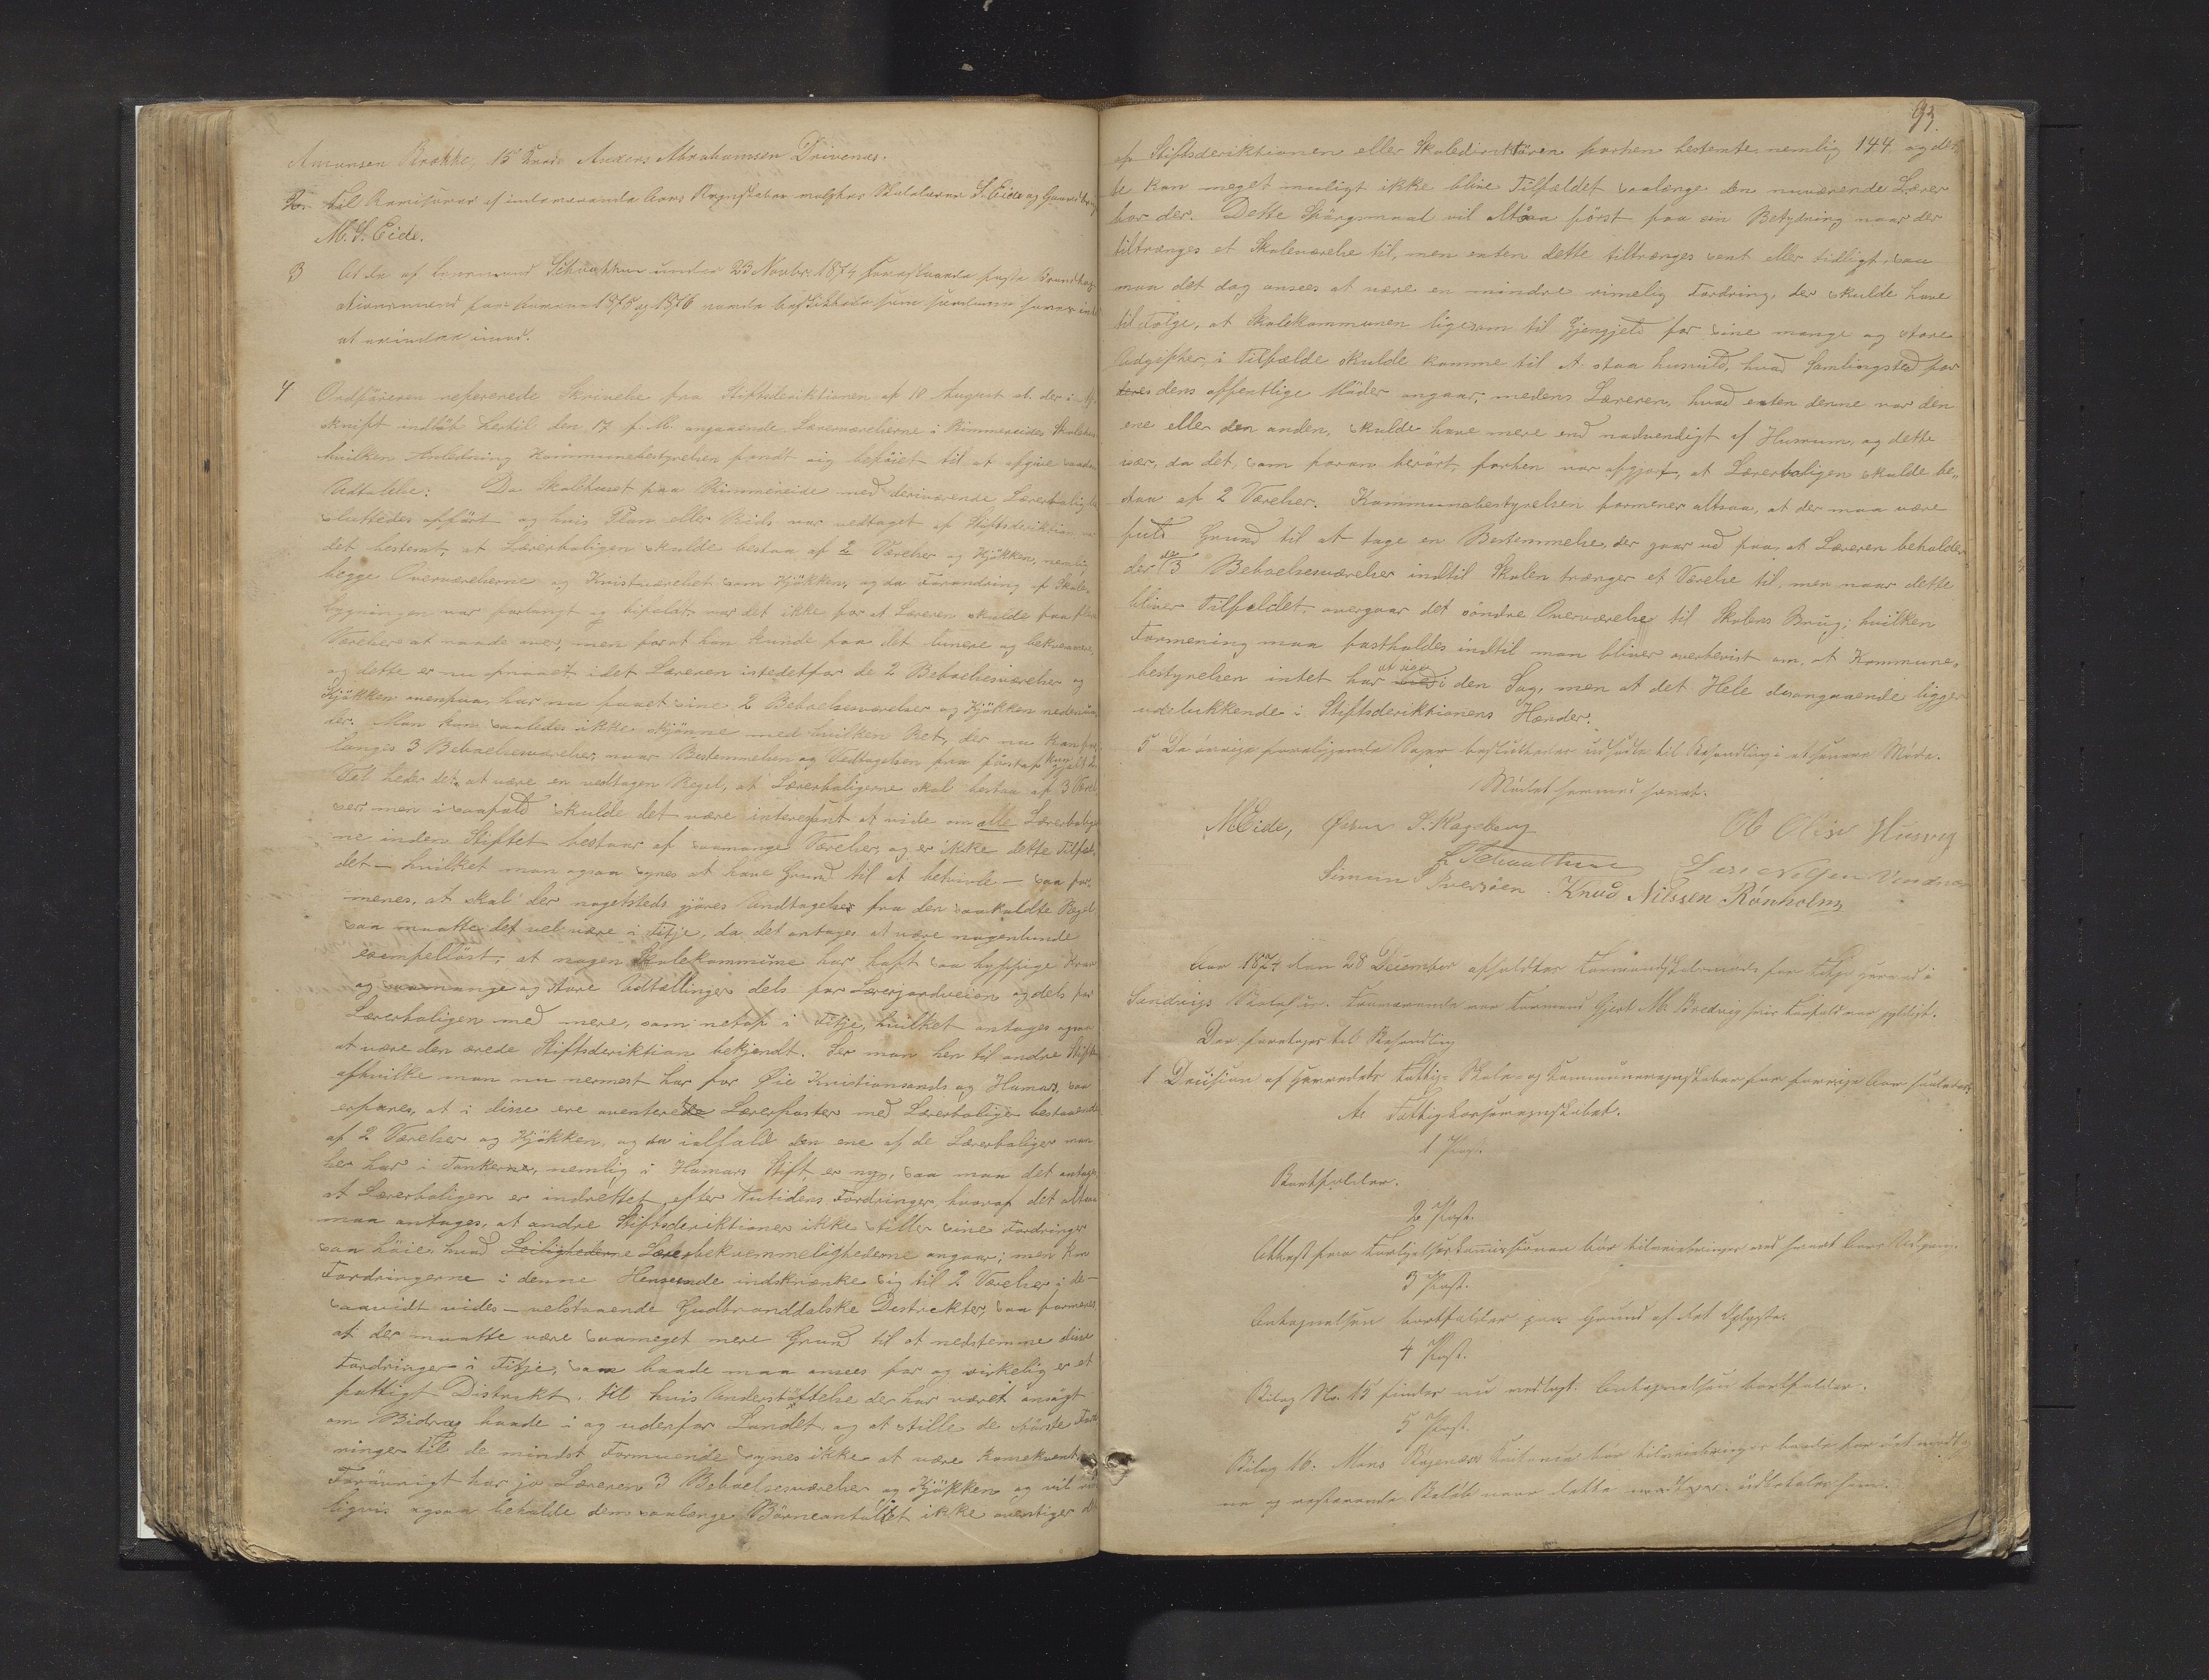 Amunsen Brokke, 15 Knud Anders Abrahamsen Drivenes.
2. til Revisorer af indeværende Aars Regnskaber valgtes Skolelærer S. Eide og Gaardbruger
M. S. Eide.
3 At de af Lensmand Schvatthun under 23 Novbr. 1874 foreslaaede faste
for Aarene 1875 og 1876 som
at erindre imod.
4 Ordføreren refererede Skrivelse fra Stiftsdirektionen af 10 August at der i Af-
skrift indløb hertil den 17 f. M. angaaende Lærerværelserne i Rimmereides Skolehus
hvilken Anledning Kommunebestyrelsen fandt sig beføiet til at afgive saadan
Udtalelse: Da Skolehuset paa Rimmereide med deriværende Lærerbolig be-
sluttedes opført og hvis Plan eller Rids var vedtaget af Stiftsdirektion, var
det bestemt, at Lærerboligen skulde bestaa af 2 Værelser og Kjøkken, nemlig
begge Overværelserne og Kvistværelset som Kjøkken, og da Forandring af Skole-
bygningen var forlangt og bifaldt var det ikke for at Læreren skulde faa flere
Værelser at raade over, men forat han kunde faa det lunere og bekvemmere,
og dette er nu opnaaet idet Læreren istedetfor de 2 Beboelsesværelser og
Kjøkken ovenpaa, har nu faaet sine 2 Beboelsesværelser og Kjøkken nedenun-
der. Man kan saaledes ikke skjønne med hvilken Ret, der nu kan for-
langes 3 Beboelsesværelser, naar Bestemmelsen og Vedtagelsen fra først af kun gjaldt 2.
Vel heder det, at være en vedtagen Regel, at Lærerboligerne skal bestaa af 3 Værel-
ser, men i saafald skulde det være interessant at vide om alle Lærerbolige-
ne inden Stiftet bestaar af saamange Værelser, og er ikke dette Tilfæl-
det – hvilket man ogsaa synes at have Grund til at betvivle – saa for-
menes, at skal der nogetsteds gjøres Undtagelser fra den saakaldte Regel,
saa maatte det vel være i Fitje, da det antages at være nogenlunde
exempelløst, at nogen Skolekommune har haft saa hyppige Krav
og saamange og store Udtællinger dels for Lærerjordveien og dels for
Lærerboligen med mere, som netop i Fitje, hvilket antages ogsaa
at være den ærede Stiftsdirektion bekjendt. Ser man hen til andre Stifter
afhvilke man nu nermest har for Øie Kristiansands og Hamars, saa
erfares, at i disse ere averterede Lærerposter med Lærerboliger bestaaende
af 2 Værelser og Kjøkken, og da ialfald den ene af de Lærerboliger man
her har i Tankerne, nemlig i Hamars Stift, er ny, saa maa det antages,
at Lærerboligen er indrettet efter Nutidens Fordringer, hvoraf det altsaa
maa antages, at andre Stiftsdirektioner ikke stiller sine Fordringer
saa høie, hvad Leilighederne Lærerbekvemmelighederne angaar; men kan
Fordringerne i denne Henseende indskrænke sig til 2 Værelser i de –
saavidt vides – velstaaende Gudbranddalske Destrikter, saa formenes
at der maatte være saameget mere Grund til at nedstemme disse
Fordringer i Fitje, som baade maa ansees for og virkelig er et
fattigt Distrikt, til hvis Understøttelse der har været ansøgt
om Bidrag baade i og udenfor Landet og at stille de største Ford-
ringer til de mindst Formuende synes ikke at være konsekvent.
Forøvrigt har jo Læreren 3 Beboelsesværelser og Kjøkken og vil rime-
ligvis ogsaa beholde dem saalænge Børneantallet ikke overstiger det
93.
af Stiftsderiktionen eller Skoledirektøren forhen bestemte nemlig 144 og det-
te kan meget muligt ikke blive Tilfældet saalænge den nuværende Lærer
bor der. Dette Spørgsmaal vil altsaa først faa ein Betydning naar der
tiltrænges et Skoleværelse til, men enten dette tiltrænges sent eller tidligt, saa
maa det dog ansees at være en mindre rimelig Fordring, der skulde have
til Følge, at Skolekommunen ligesom til Gjengjeld for sine mange og store
Udgifter, i Tilfælde skulde komme til at staa husvild, hvad Samlingsted for
deres dens offentlige Møder angaar, medens Læreren, hvad enten denne var den
ene eller den anden, skulde have mere end nødvendigt af Husrum, og dette
især, da det, som foran berørt, forhen var afgjort, at Lærerboligen skulde be-
staa af 2 Værelser. Kommunebestyrelsen formener altsaa, at der maa være
fuld Grund til at tage en Bestemmelse, der gaar ud paa, at Læreren beholder
der de 3 Beboelsesværelser indtil Skolen trænger et Værelse til, men naar dette
bliver Tilfældet, overgaar det søndre Overværelse til Skolens Brug; hvilken
Formening maa fastholdes indtil man bliver overbevist om, at Kommune-
bestyrelsen intet har at sige i den Sag, men at det Hele desangaaende ligger
udelukkende i Stiftsderiktionens Hænder.
5 De øvrige foreliggende Sager besluttedes udsatte til Behandling i et senere Møde.
Mødet hermed hævet.
M Eide, Johan S. Mageberg Ole Olsen Husvig
L Schvatthun Lars Nilsen Vindnes
Simon Iversøen Knud Nilssen Rønholm
Aar 1874 den 28 December afholdtes Formandskabsmøde for Fitje Herred i
Sandvigs Skolehus. Fraværende var Formand Gjert M. Bredvig hvis Forfald var gyldigt.
Der foretoges til Behandling
1 Decision af Herredets Fattig- Skole- og Kommuneregnskaber for forrige Aar saaledes:
A. Fattigkasseregnskabet.
1 Post.
Bortfalder.
2 Post.
Attest fra Forligelseskommissionen bør tilveiebringes ved hvert Aars Udgang.
3 Post.
Antegnelsen bortfalder paa Grund af det Oplyste.
4 Post.
Bilag No. 15 findes nu vedlagt. Antegnelsen bortfalder.
5 Post.
Bilag 16. Mons Bøjenæs Kvitering bør tilveiebringes baade for det modtag-
ne og resterende Beløb naar dette udbetales ham.